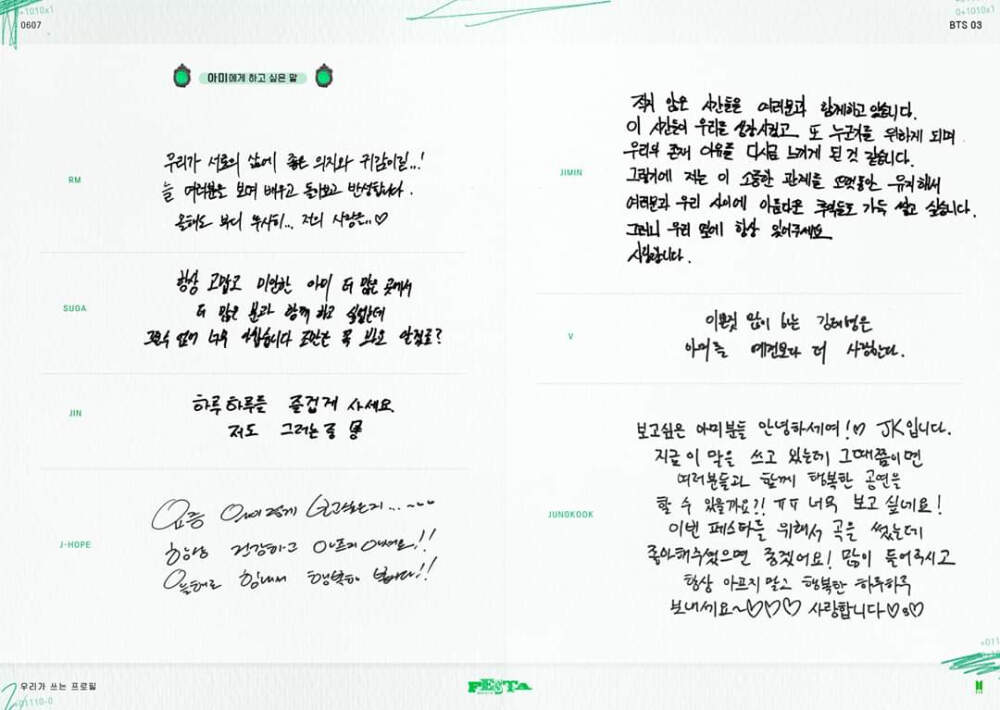 0607
BTS 03
아미에게 하고 싶은 말
RM
우리가 서로의 삶에 좋은 의지와 귀감이길..!
늘 여러분을 보며 배우고 돌아보고 반성합니다.
올해도 부디 무사히... 저의 사랑은..♡
SUGA
항상 고맙고 미안한 아미 더 많은 곳에서
더 많은 분과 함께 하고 싶었는데
그럴수 없어 너무 아쉽습니다 조만간 꼭 보고 안길로?
JIN
하루하루를 즐겁게 사세요
저도 그러는 중
J-HOPE
요즘
항상 건강하고 아프지 마세요!!
올해도 힘내서 행복해 봅시다!!
JIMIN
적지 않은 시간들을 여러분과 함께하고 있습니다.
이 시간들이 우리를 성장시켰고 또 누군가를 위하게 되며
우리의 존재 이유를 다시금 느끼게 된 것 같습니다.
그렇기에 저는 이 소중한 관계를 오랫동안 유지해서
여러분과 우리 사이에 아름다운 추억들로 가득 쌓고 싶습니다.
그러니 우리 옆에 항상 있어주세요
사랑합니다.
V
이쁜짓 많이 하는 김태형은
아미를 예전보다 더 사랑한다.
JUNGKOOK
보고싶은 아미분들 안녕하세여!♡ JK입니다.
지금 이 말을 쓰고 있는데 그때쯤이면
여러분들과 함께 행복한 공연을
할 수 있을까요?! ㅠㅠ 너무 보고 싶네요!
이번 페스타를 위해서 곡을 썼는데
좋아해주셨으면 좋겠어요! 많이 들어주시고
항상 아프지 말고 행복한 하루하루
보내세요~♡♡♡ 사랑합니다♡s♡
우리가 쓰는 프로필
FESTA